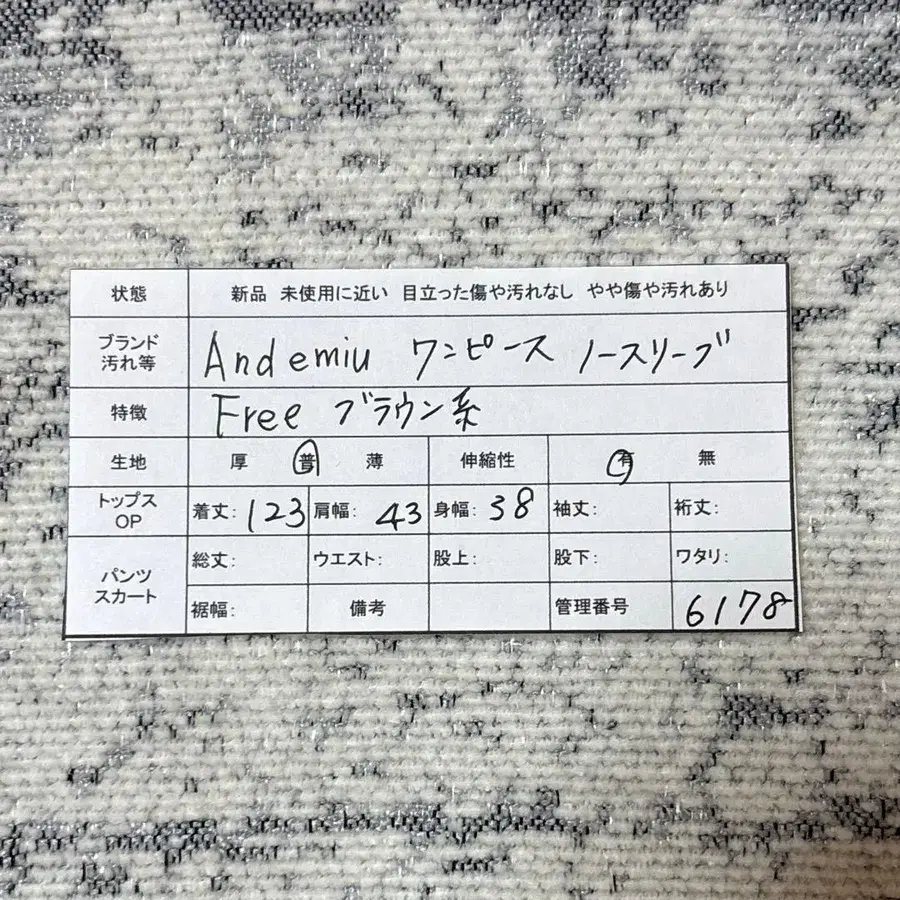 状態 新品 未使用に近い 目立った傷や汚れなし やや傷や汚れあり
ブランド
汚れ等 Andemiu ワンピース ノースリーブ
特徴 Free ブラウン系
生地 厚 普 薄 伸縮性 有 無
トップス
OP 着丈: 123 肩幅: 43 身幅: 38 袖丈: 裄丈:
パンツ
スカート 総丈: ウエスト: 股上: 股下: ワタリ:
裾幅: 備考 管理番号 6178